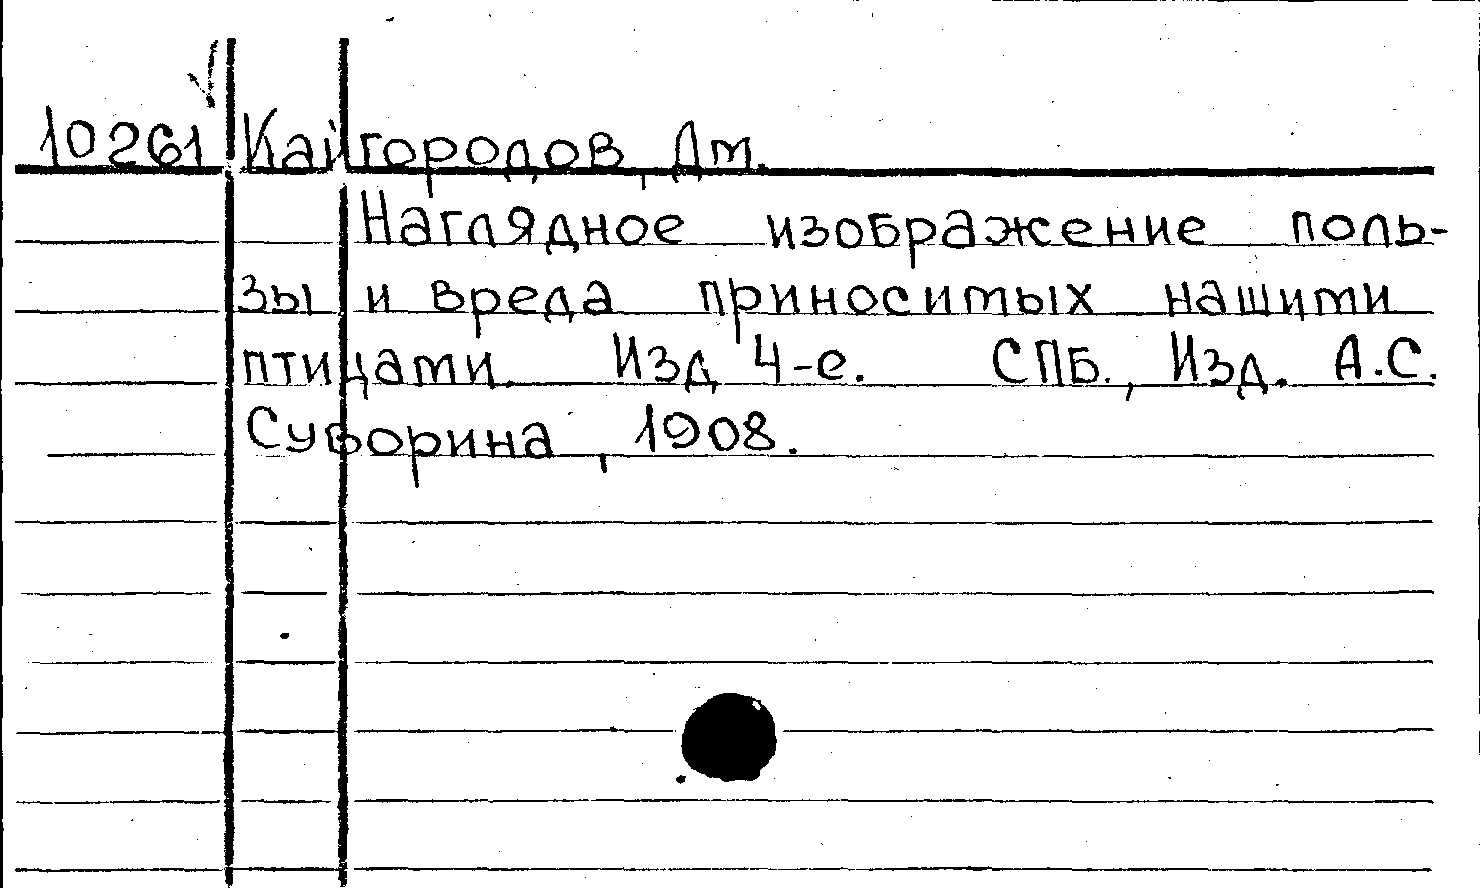 10261 Кайгородов, Дм.
Наглядное изображение поль-
зы и вреда приносимых нашими
птицами. Изд 4-е. СПБ., Изд. А.С.
Суворина, 1908.